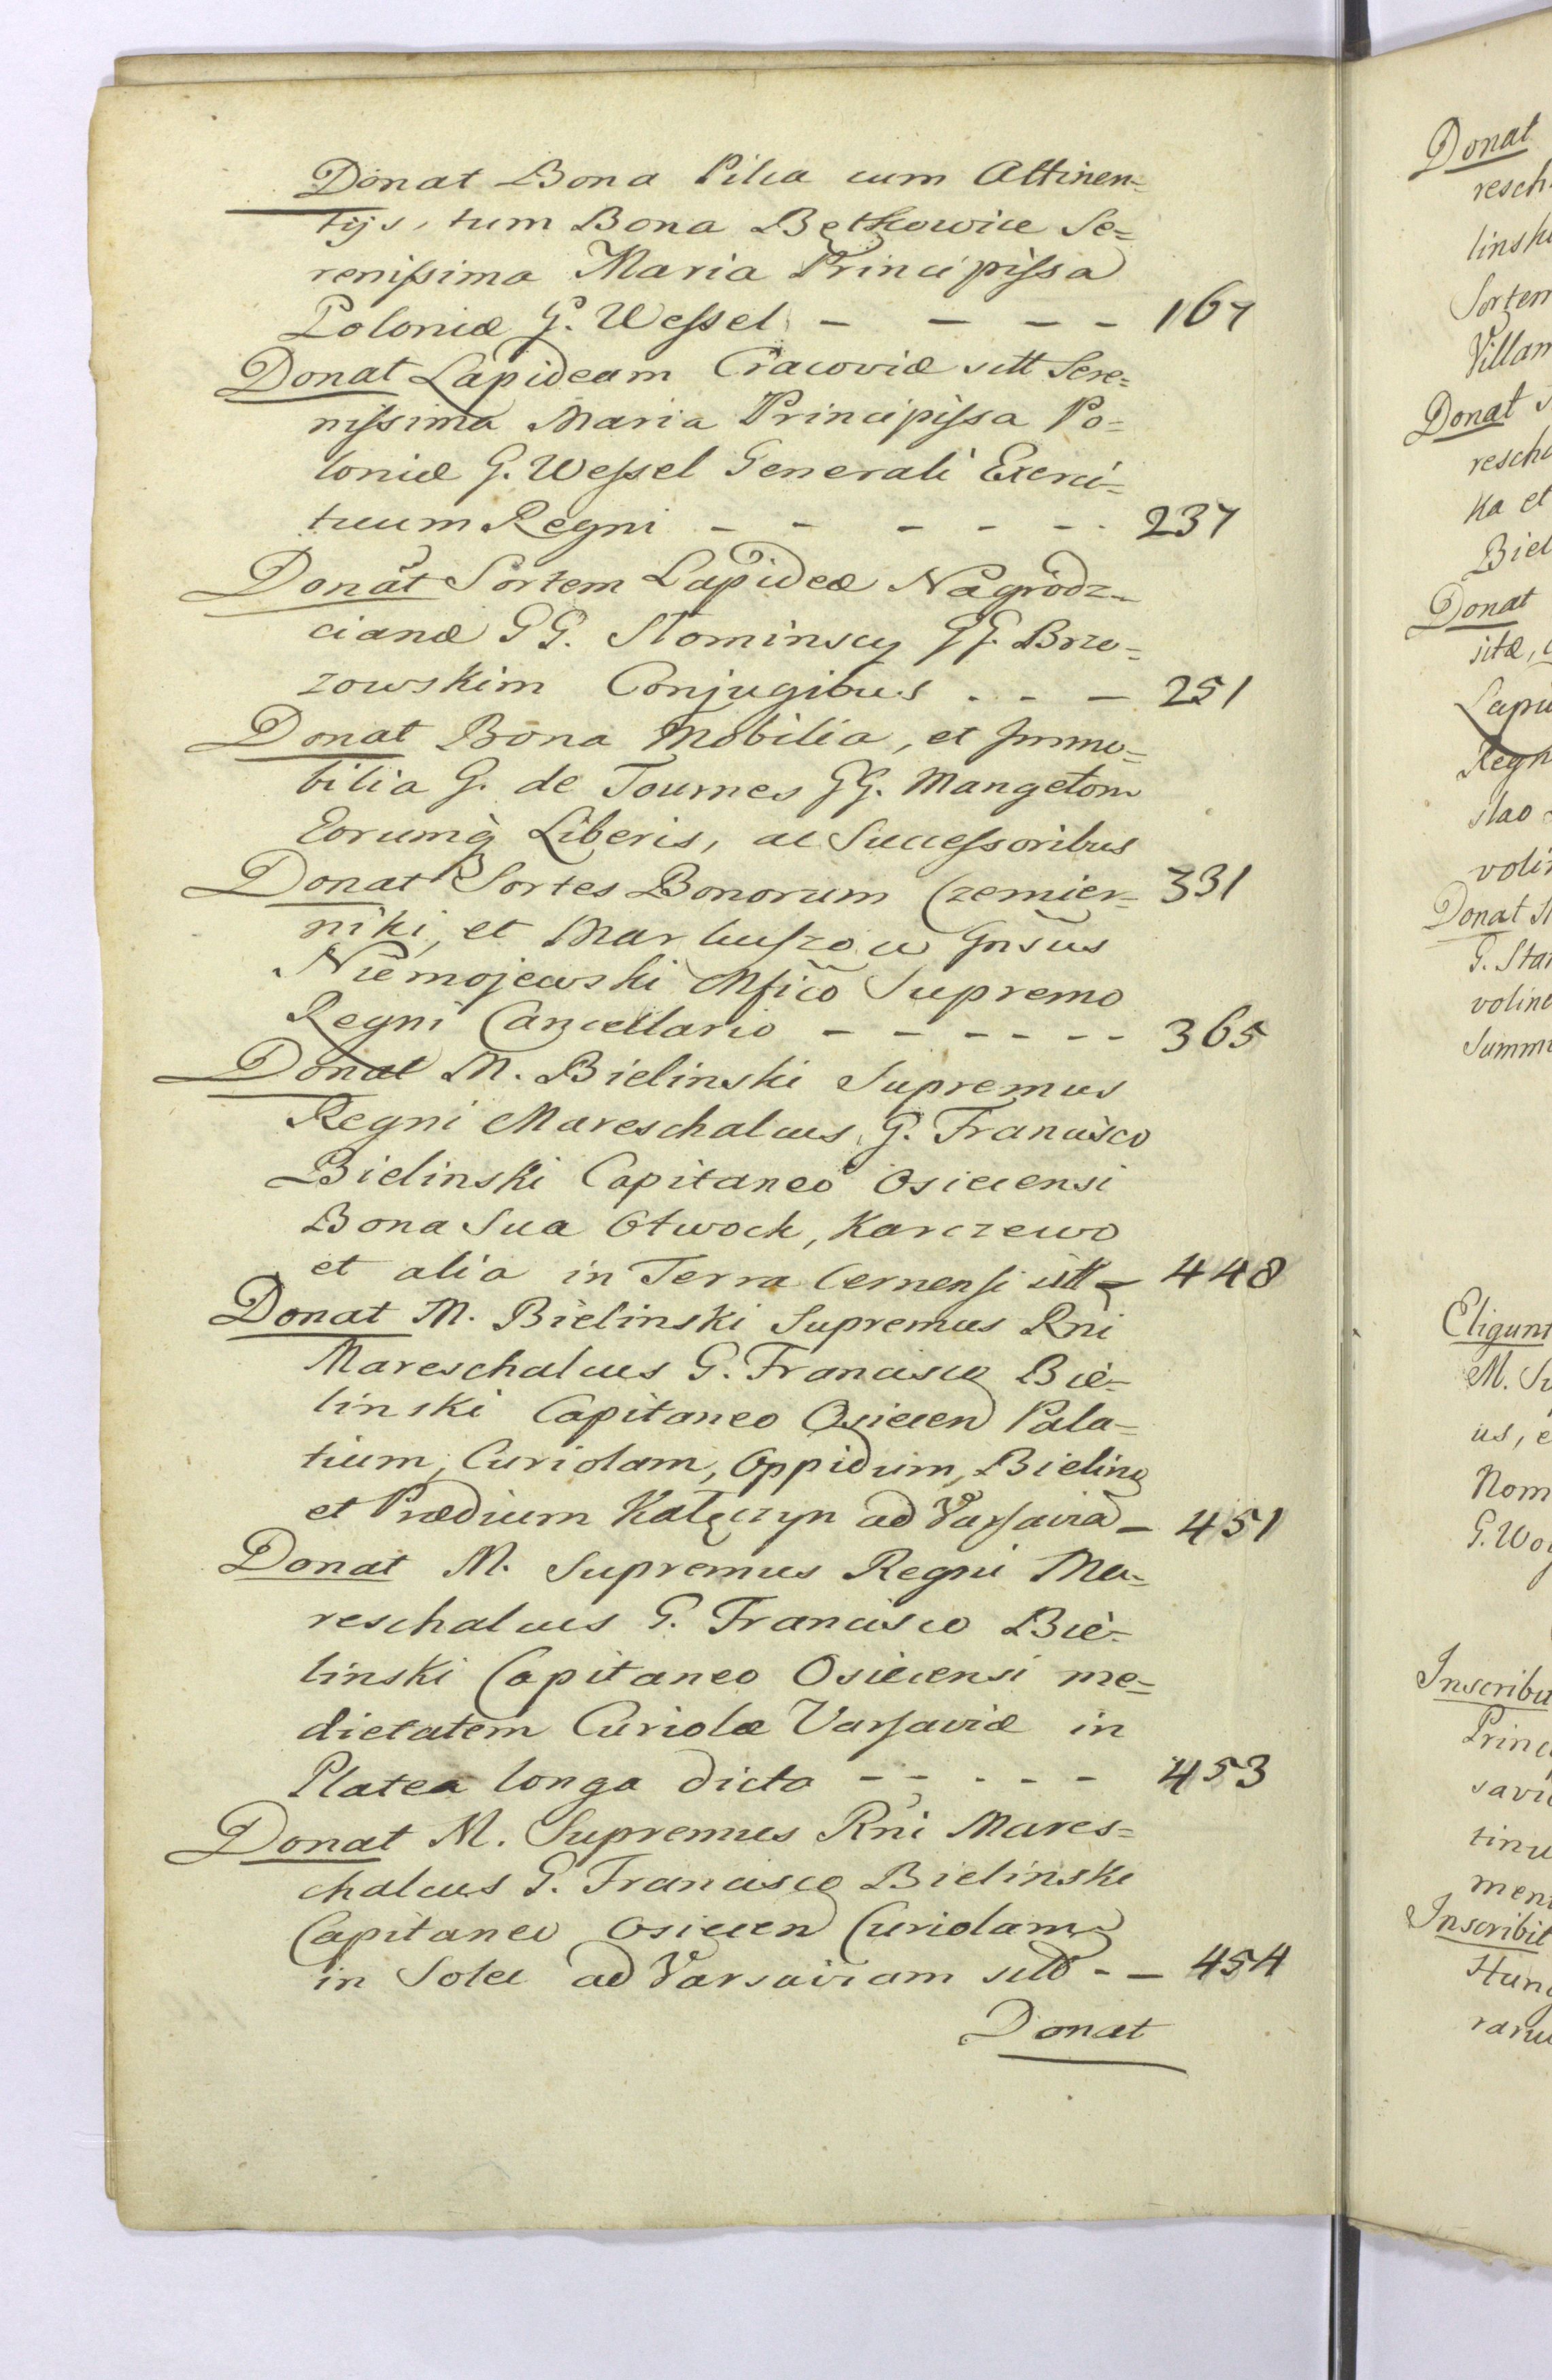 Donat Bona Pilca cum Attinen=
tijs, tum Bona Bętkowice Se=
renißima Maria Principißa
Poloniæ G. Weßel - - - - 167
Donat Lapideam Cracoviæ sitt Sere=
nißima Maria Principißa Po=
loniæ G. Weßel Generali Exerci=
tuum Regni - - - - - - 237
Donat Sortem Lapideæ Nagrodz=
cianæ GG. Słominscy GG. Brzo=
zowskim Conjugibus - - - 251
Donat Bona Mobilia, et Immo=
bilia G. de Tournes GG. Mangetom
Eorumq̀ Liberis, ac Succeßoribus 331
Donat Sortes Bonorum Czemier=
niki, et Markuszow Gnsus
Niemojewski Mfico Supremo
Regni Cancellario - - - - - - 365
Donat M. Bielinski Supremus
Regni Mareschalcus, G. Francisco
Bielinski Capitaneo Osiecensi
Bona Sua Otwock, Karczewo
et alia in Terra Cernensi sitt - 448
Donat M. Bielinski Supremus Rni
Mareschalcus G. Francisco Bie=
linski Capitaneo Osiecen Pala=
tium, Curiolam, Oppidum, Bielino
et Prædium Kałęczyn ad Varsaviã - 451
Donat M. Supremus Regni Ma=
reschalcus G. Francisco Bie=
linski Capitaneo Osiecensi me=
dietatem Curiolæ Varsaviæ in
Platea longa dicta - - - - - 453
Donat M. Supremus Rni Mares=
chalcus G. Francisco Bielinski
Capitaneo Osiecen Curiolam
in Solec ad Varsaviam sitt - - 454
Donat
Donat
resch
linski
Sortem
Villam
Donat
rescha
ka et
Biel
Donat
sitæ,
Lapi
Regn
slao
volin
Donat
G. Stan
voline
Summ
Eligunt
M. Su
us, e
Nom
G. Woy
Inscribu
Princ
savi
tinu
men
Inscribit
Hung
raru